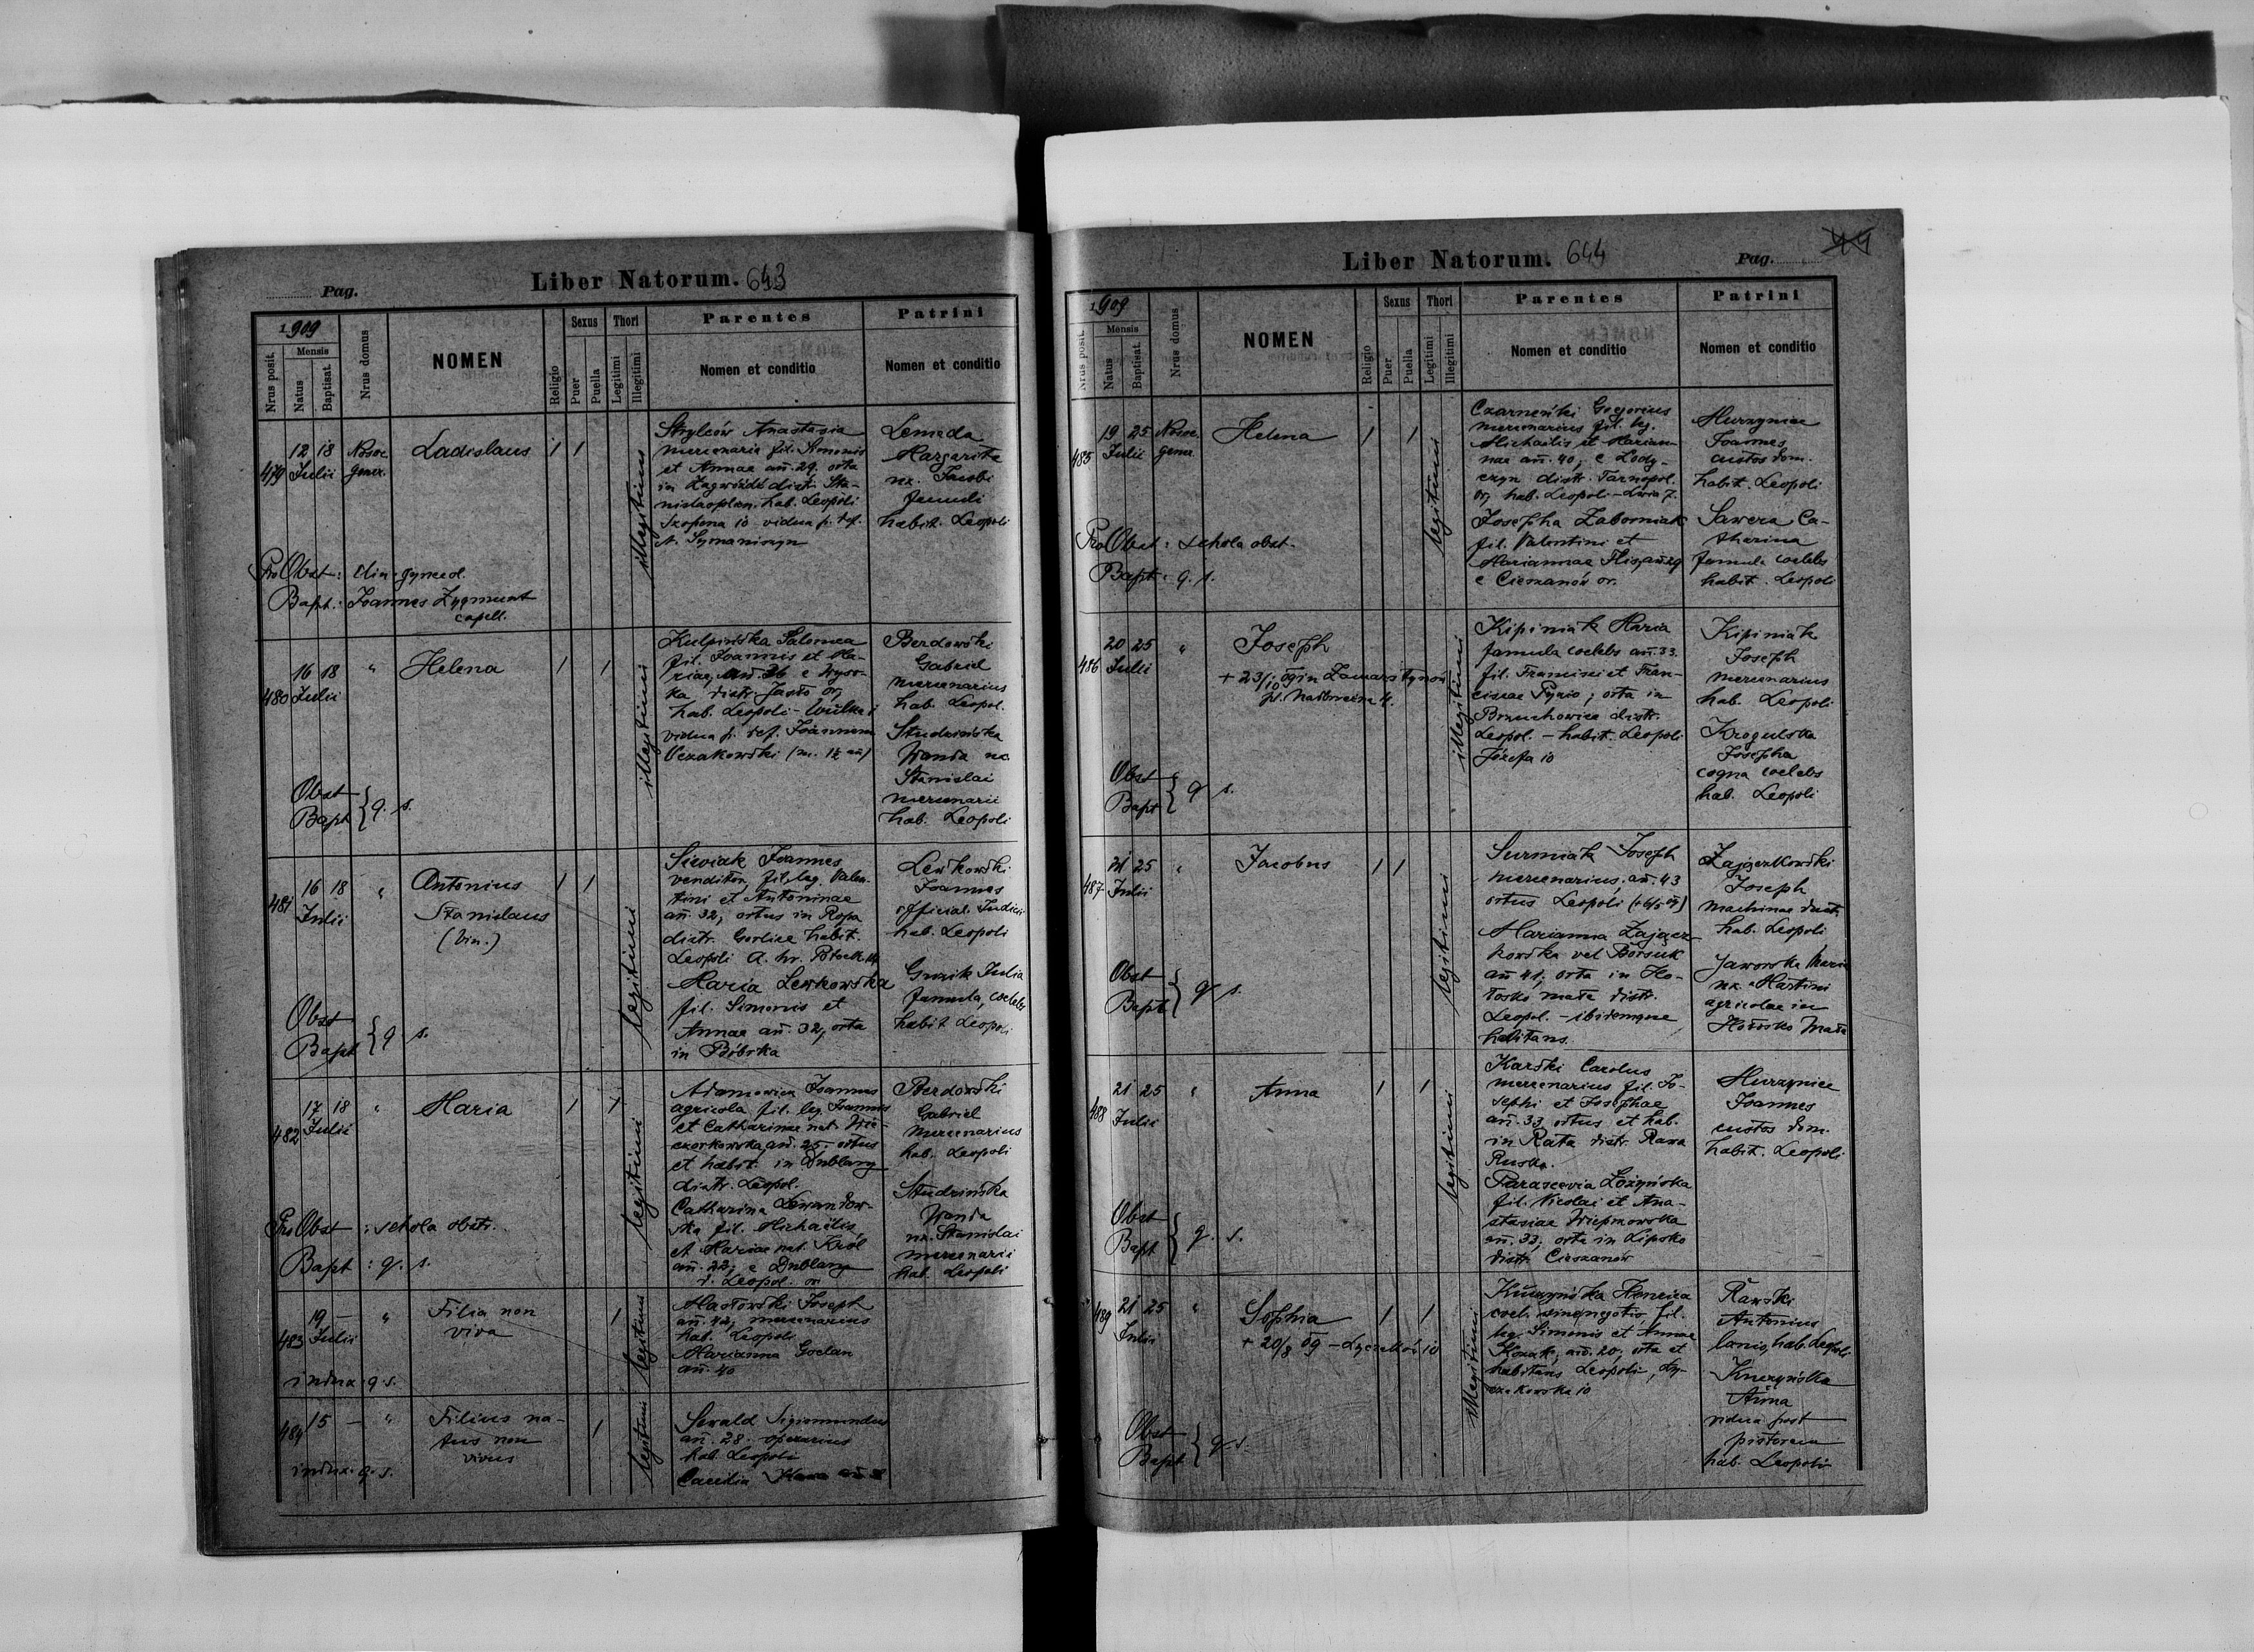 Pag.
Liber Natorum. 643
1909
Nrus posit.
Mensis
Natus
Baptisat.
Nrus domus
NOMEN
Religio
Sexus
Puer
Puella
Thori
Legitimi
Illegitimi
Parentes
Nomen et conditio
Patrini
Nomen et conditio
479
12 18
Julii
Nosoc.
gener.
Ladislaus
1 1
illegitimi
Strylców Anastasia
mercenaria fil. Simonis
et Annae añ. 29. orta
in Zagwóźdź distr. Sta-
nislaopolen. hab. Leopoli
Szopena 10. vidua p. def.
Lemeda
Margarita
ux. Jacobi
famuli
habit. Leopoli
Pro Obst: clin. gynecol.
Bapt.: Joannes Zygmunt
capell.
480
16 18
Julii
"
Helena
1 1
illegitimi
Kulpińska Salomea
fil. Joannis et Ma-
riae, añ. 36 e Wyso-
ka distr. Jasło or,
hab. Leopoli - Wulka
vidua p. def. Joannem
Oczakowski
Berdowski
Gabriel
mercenarius
hab. Leopol.
Studzińska
Wanda ux.
Stanislai
mercenarii
hab. Leopoli
Obst
Bapt } q. s.
481
16 18
Julii
"
Antonius
Stanislaus
(bin.)
1 1
legitimi
Siewiak Joannes
venditor, fil. leg. Valen-
tini et Antoninae
añ. 32, ortus in Ropa
distr. Gorlice habit.
Leopoli
Maria Lewkowska
fil. Simonis et
Annae añ. 32, orta
in Bóbrka
Lewkowski
Joannes
official. Judicii
hab. Leopoli
Guzik Julia
famula, coelebs
habit Leopoli
Obst
Bapt } q s.
482
17 18
Julii
"
Maria
1 1
legitimi
Adamowicz Joannes
agricola fil. leg. Joannis
et Catharinae nat. Wie-
czorkowska, añ. 25. ortus
et habit. in Dublany
distr. Leopol.
Catharina Lewandow-
ska fil. Michaëlis
et Mariae nat. Król
añ. 22, e Dublany
d. Leopol. or
Berdowski
Gabriel
mercenarius
hab. Leopoli
Studzińska
Wanda
ux. Stanislai
mercenarii
hab. Leopoli
Pro Obst: schola obstr.
Bapt: q. s.
483
19 —
Julii
"
Filia non
viva
1
legitimi
Masłowski Joseph
añ. 42, mercenarius
hab. Leopoli
Marianna Goelan
añ. 40
indux. q. s.
484
15 —
"
Filius na-
tus non
vivus
1
legitimi
Sewald Sigismundus
añ. 28. operarius
hab. Leopoli
Caecilia
indux. q. s.
Liber Natorum. 644
Pag.
1909
Nrus posit.
Mensis
Natus
Baptisat.
Nrus domus
NOMEN
Religio
Sexus
Puer
Puella
Thori
Legitimi
Illegitimi
Parentes
Nomen et conditio
Patrini
Nomen et conditio
485
19 25
Julii
Nosoc.
gener.
Helena
1 1
legitimi
Czarnecki Gregorius
mercenarius fil. leg.
Michaëlis et Marian-
nae añ. 40, e Lody-
czyn distr. Tarnopol.
or, hab. Leopoli - Lwia 7.
Josepha Zaborniak
fil. Valentini et
Mariannae Flis, añ 29
e Cieszanów or.
Hurzynice
Joannes
custos dom.
habit. Leopoli
Sawera Ca-
tharina
famula coelebs
habit. Leopoli
Pro Obst: schola obst.
Bapt: q. s.
486
20 25
Julii
"
Joseph
+ 23/10 09 in Zamarstynów
illegitimi
Kipiniak Maria
famula coelebs añ. 33.
fil. Francisci et Fran-
ciscae Pyrio, orta in
Brzuchowice distr.
Leopol. - habit. Leopoli
Józefa 10
Kipiniak
Joseph
mercenarius
hab. Leopoli
Krogulska
Josepha
cogna coelebs
hab. Leopoli
Obst
Bapt } q s.
487
21 25
Julii
"
Jacobus
1 1
legitimi
Surmiak Joseph
mercenarius, añ. 43
ortus Leopoli
Marianna Zającz-
kowska vel Borsuk
añ 41, orta in Ho-
łosko małe distr.
Leopol. - ibidemque
habitans.
Zajączkowski
Joseph
machinae duct.
hab. Leopoli
Jaworska Maria
ux. Martini
agricolae in
Hołosko małe
Obst
Bapt } q s.
488
21 25
Julii
"
Anna
1 1
legitimi
Karski Carolus
mercenarius fil. Jo-
sephi et Josephae
añ. 33 ortus et hab.
in Rata distr. Rawa
Ruska.
Parascevia Łozyńska
fil. Nicolai et Ana-
stasiae
añ. 33, orta in Lipsko
distr. Cieszanów
Hurzynice
Joannes
custos dom.
habit. Leopoli
Obst
Bapt } q. s.
489
21 25
Julii
"
Sophia
+ 20/8 09 - Łyczaków 10
1 1
illegitimi
Kuczyńska Henrica
coel. sine negotio, fil.
leg. Simonis et Annae
Kozak, añ. 20, orta et
habitans Leopoli, Ły-
czakowska 10
Rawski
Antonius
lanio, hab. Leopoli
Kuczyńska
Anna
vidua post
pistorem
hab. Leopoli
Obst
Bapt } q s.